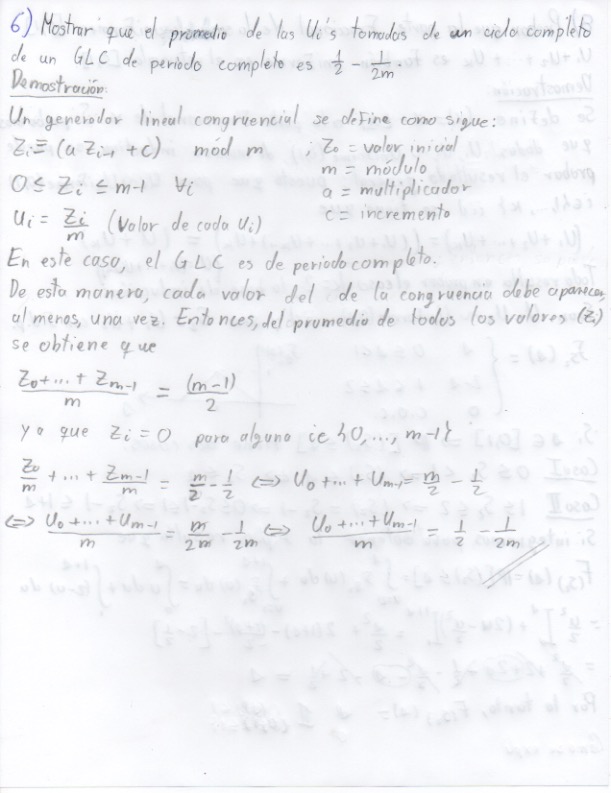 6) Mostrar que el promedio de las Ui's tomadas de un ciclo completo
de un GLC [de periodo completo es 1/2 - 1/2m.
Demostración.
Un generador lineal congruencial se define como sigue:
Zi ≡ (a Zi-1 + c) mód m , Z0 = valor inicial
0 ≤ Zi ≤ m-1 ∀i m = módulo
a = multiplicador
Ui = Zi/m (Valor de cada Ui) c = incremento
En este caso, el GLC es de periodo completo.
De esta manera, cada valor del de la congruencia debe aparecer
al menos, una vez. Entonces, del promedio de todos los valores (Zi)
se obtiene que
(Z0 + ... + Zm-1)/m = (m-1)/2
ya que Zi = 0 para alguna i ∈ {0, ..., m-1}
Z0/m + ... + Zm-1/m = m/2 - 1/2 ⟺ U0 + ... + Um-1 = m/2 - 1/2
⟺ (U0 + ... + Um-1)/m = m/2m - 1/2m ⟺ (U0 + ... + Um-1)/m = 1/2 - 1/2m